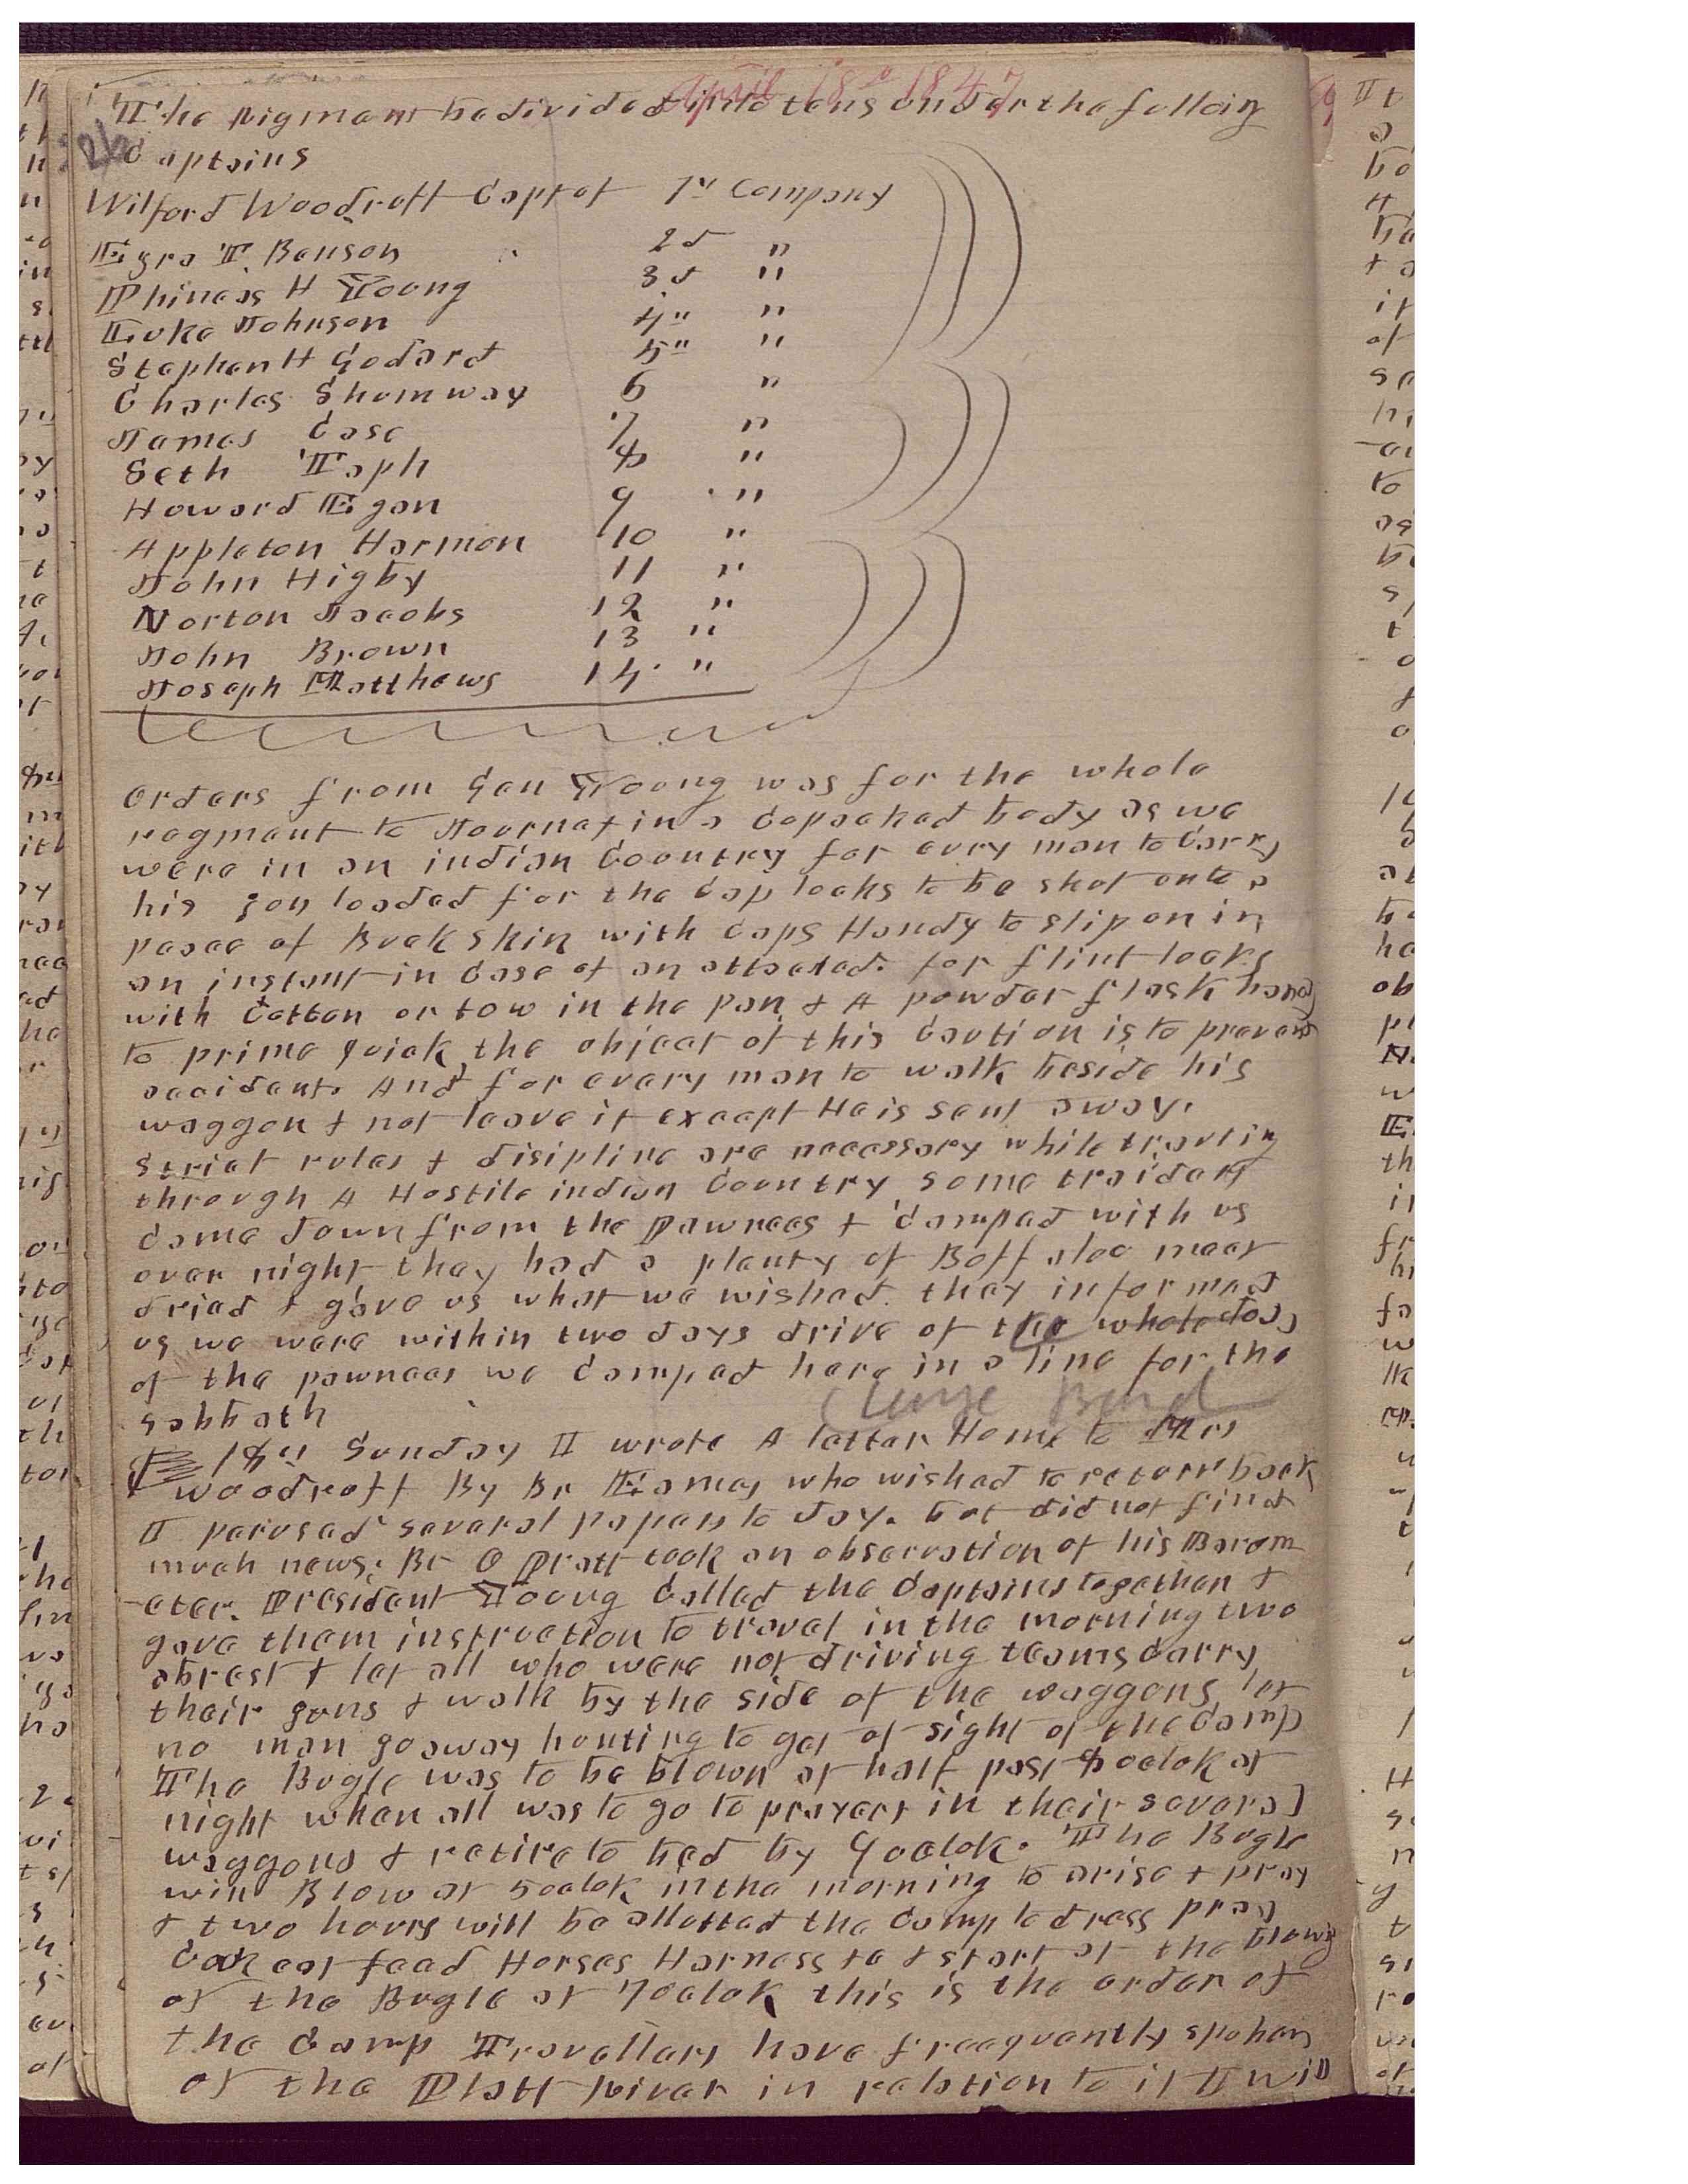 April 18th 1847
The Rigment be divided into tens under the folloing
Captains
Wilford Woodruff Capt of 1st Company
Ezra T. Benson 2d "
Phinehas H Young 3d "
Luke Johnson 4th "
Stephen H Godard 5th "
Charles Shumway 6 "
James Case 7 "
Seth Taph 8 "
Howard Egan 9 "
Appleton Harmon 10 "
John Higby 11 "
Norton Jacobs 12 "
John Brown 13 "
Joseph Matthews 14 "
Orders from Gen Young was for the whole
regment to Journey in a Copacked body as we
were in an indian Country for evry man to Carry
his gun loaded for the Cap locks to be shut onto a
peace of Buckskin with Caps Handy to slip on in
an instant in Case of an attacked. for flint locks
with Cotton or tow in the pan & A powder flask handy
to prime quick the object of this Caution is to prevent
accidents And for every man to walk beside his
waggon & not leave it except He is sent away.
Strict rules & disipline are necessary while travling
through A Hostile indian Country some traiders
Came down from the Pawnees & Camped with us
over night they had a plenty of Buffaloo meat
dried & gave us what we wished. they informed
us we were within two days drive of the whole
of the pawnees we Camped here in a line for the
Large Band
Sabbath
18th Sunday I wrote A letter Home to Mrs
Woodruff By Br Eames who wished to return back
I perused several papers to day. but did not find
much news. Br O Pratt took an observation of his Barom
-eter. President Young Called the Captains together &
gave them instruction to travel in the morning two
abrest & let all who were not driving teams Carry
their guns & walk by the side of the waggons, let
no man go away hunting to get of sight of the Camp
The Bugle was to be blown at half past 8 oclok at
night when all was to go to prayers in their several
waggons & retire to bed by 9 oclok. The Bugle
will Blow at 5 oclok in the morning to arise & pray
& two hours will be allotted the Camp to dress pray
Cook eat feed Horses Harness &c & start at the blowing
of the Bugle at 7 oclok this is the order of
the Camp Travellers have freequently spoken
of the Platt River in relation to it I will